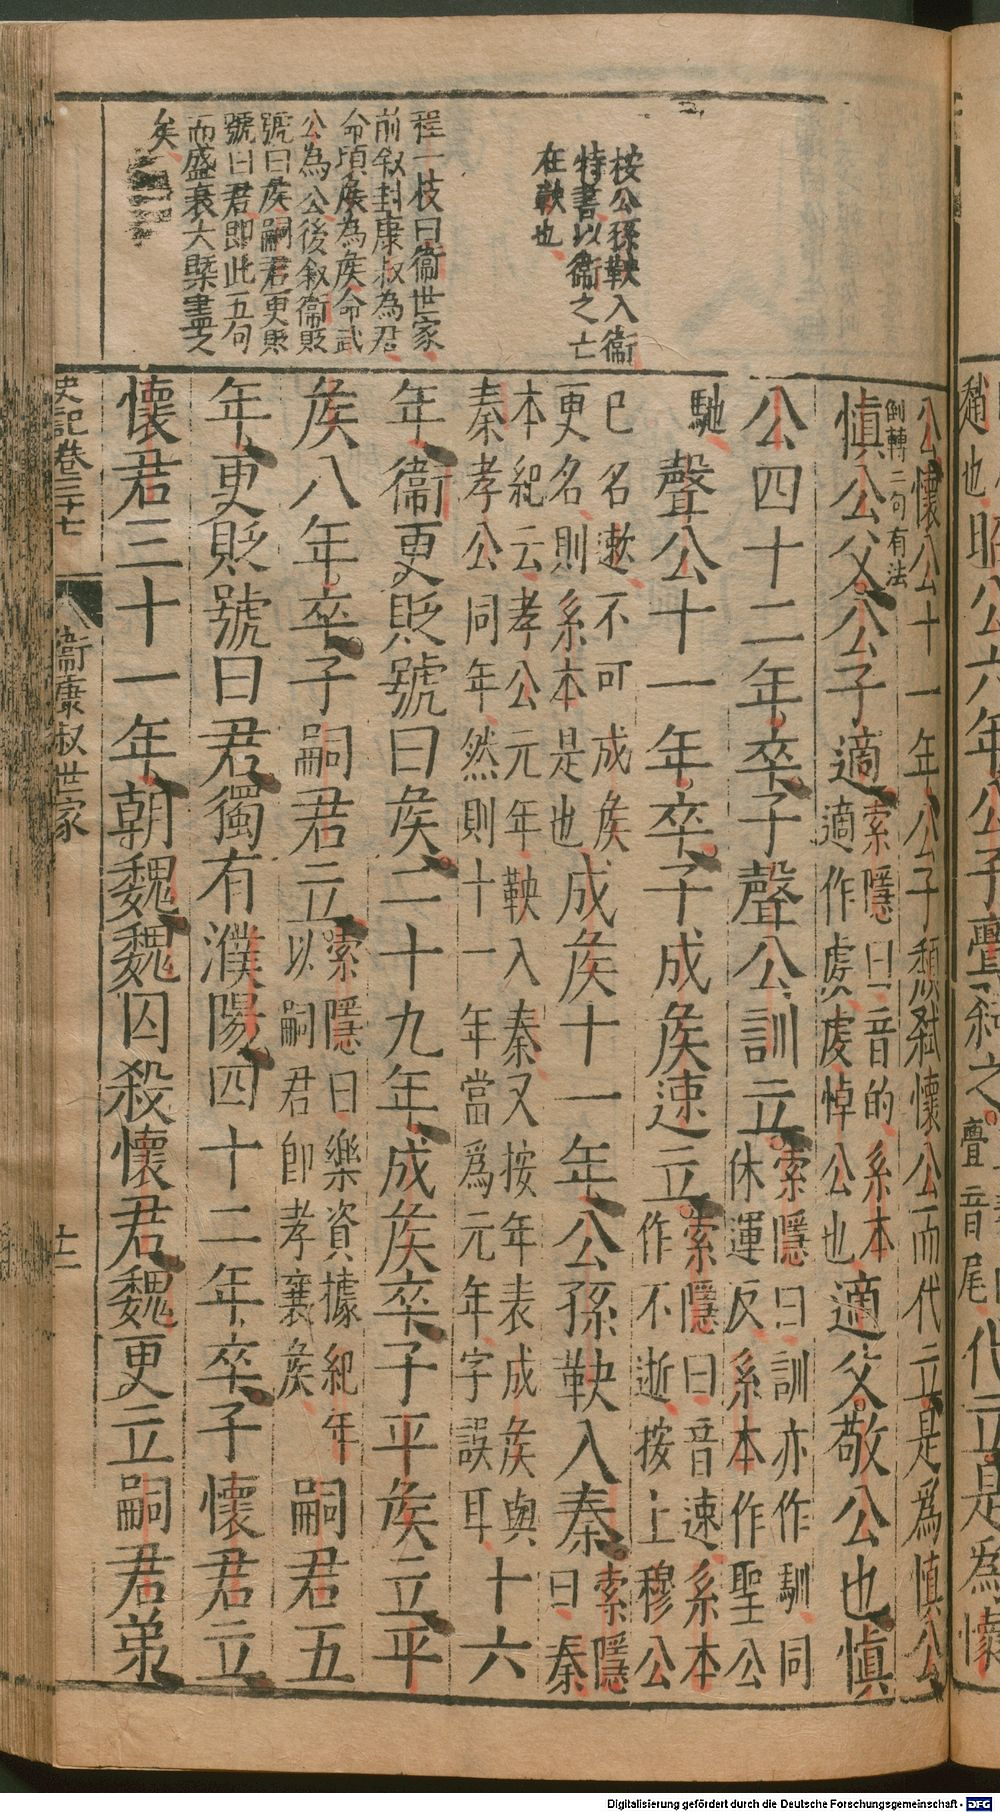 按公孫鞅入衞
特書以衞之亡
在鞅也
程一枝曰衞世家
前叙封康叔為君
命頃矦為矦命武
公為公後叙衞貶
號曰矦嗣君更貶
號曰君即此五句
而盛衰大槩盡之
矣
公懷公十一年公子頽弒懷公而代立是爲慎公
倒轉二句有法
慎公父公子適
索隱曰音的系本
適作虔虔悼公也
適父敬公也慎
公四十二年卒子聲公訓立
索隱曰訓亦作馴同
休運反系本作聖公
馳
聲公十一年卒子成矦速立
索隱曰音速系本
作不逝按上穆公
已名遬不可成矦
更名則系本是也
成矦十一年公孫鞅入秦
索隱
曰秦
本紀云孝公元年鞅入秦又按年表成矦與
秦孝公同年然則十一年當爲元年字誤耳
十六
年衞更貶號曰矦二十九年成矦卒子平矦立平
矦八年卒子嗣君立
索隱曰樂資據紀年
以嗣君即孝襄矦
嗣君五
年更貶號曰君獨有濮陽四十二年卒子懷君立
懷君三十一年朝魏魏囚殺懷君魏更立嗣君弟
史記卷三十七
衞康叔世家
十二
昭公六年公子亹弒之
亹音尾
代立是為懷
Digitalisierung gefördert durch die Deutsche Forschungsgemeinschaft - DFG